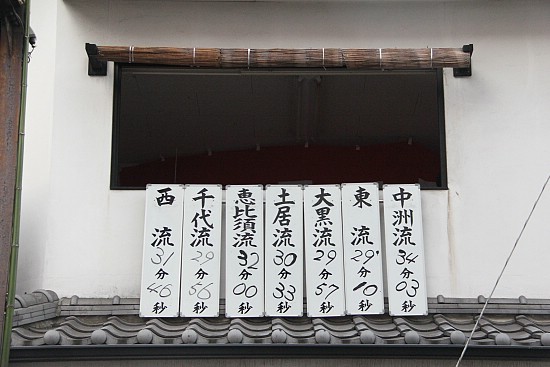 中洲流 34分03秒
東流 29分10秒
大黒流 29分57秒
土居流 30分33秒
恵比須流 32分00秒
千代流 29分56秒
西流 31分46秒